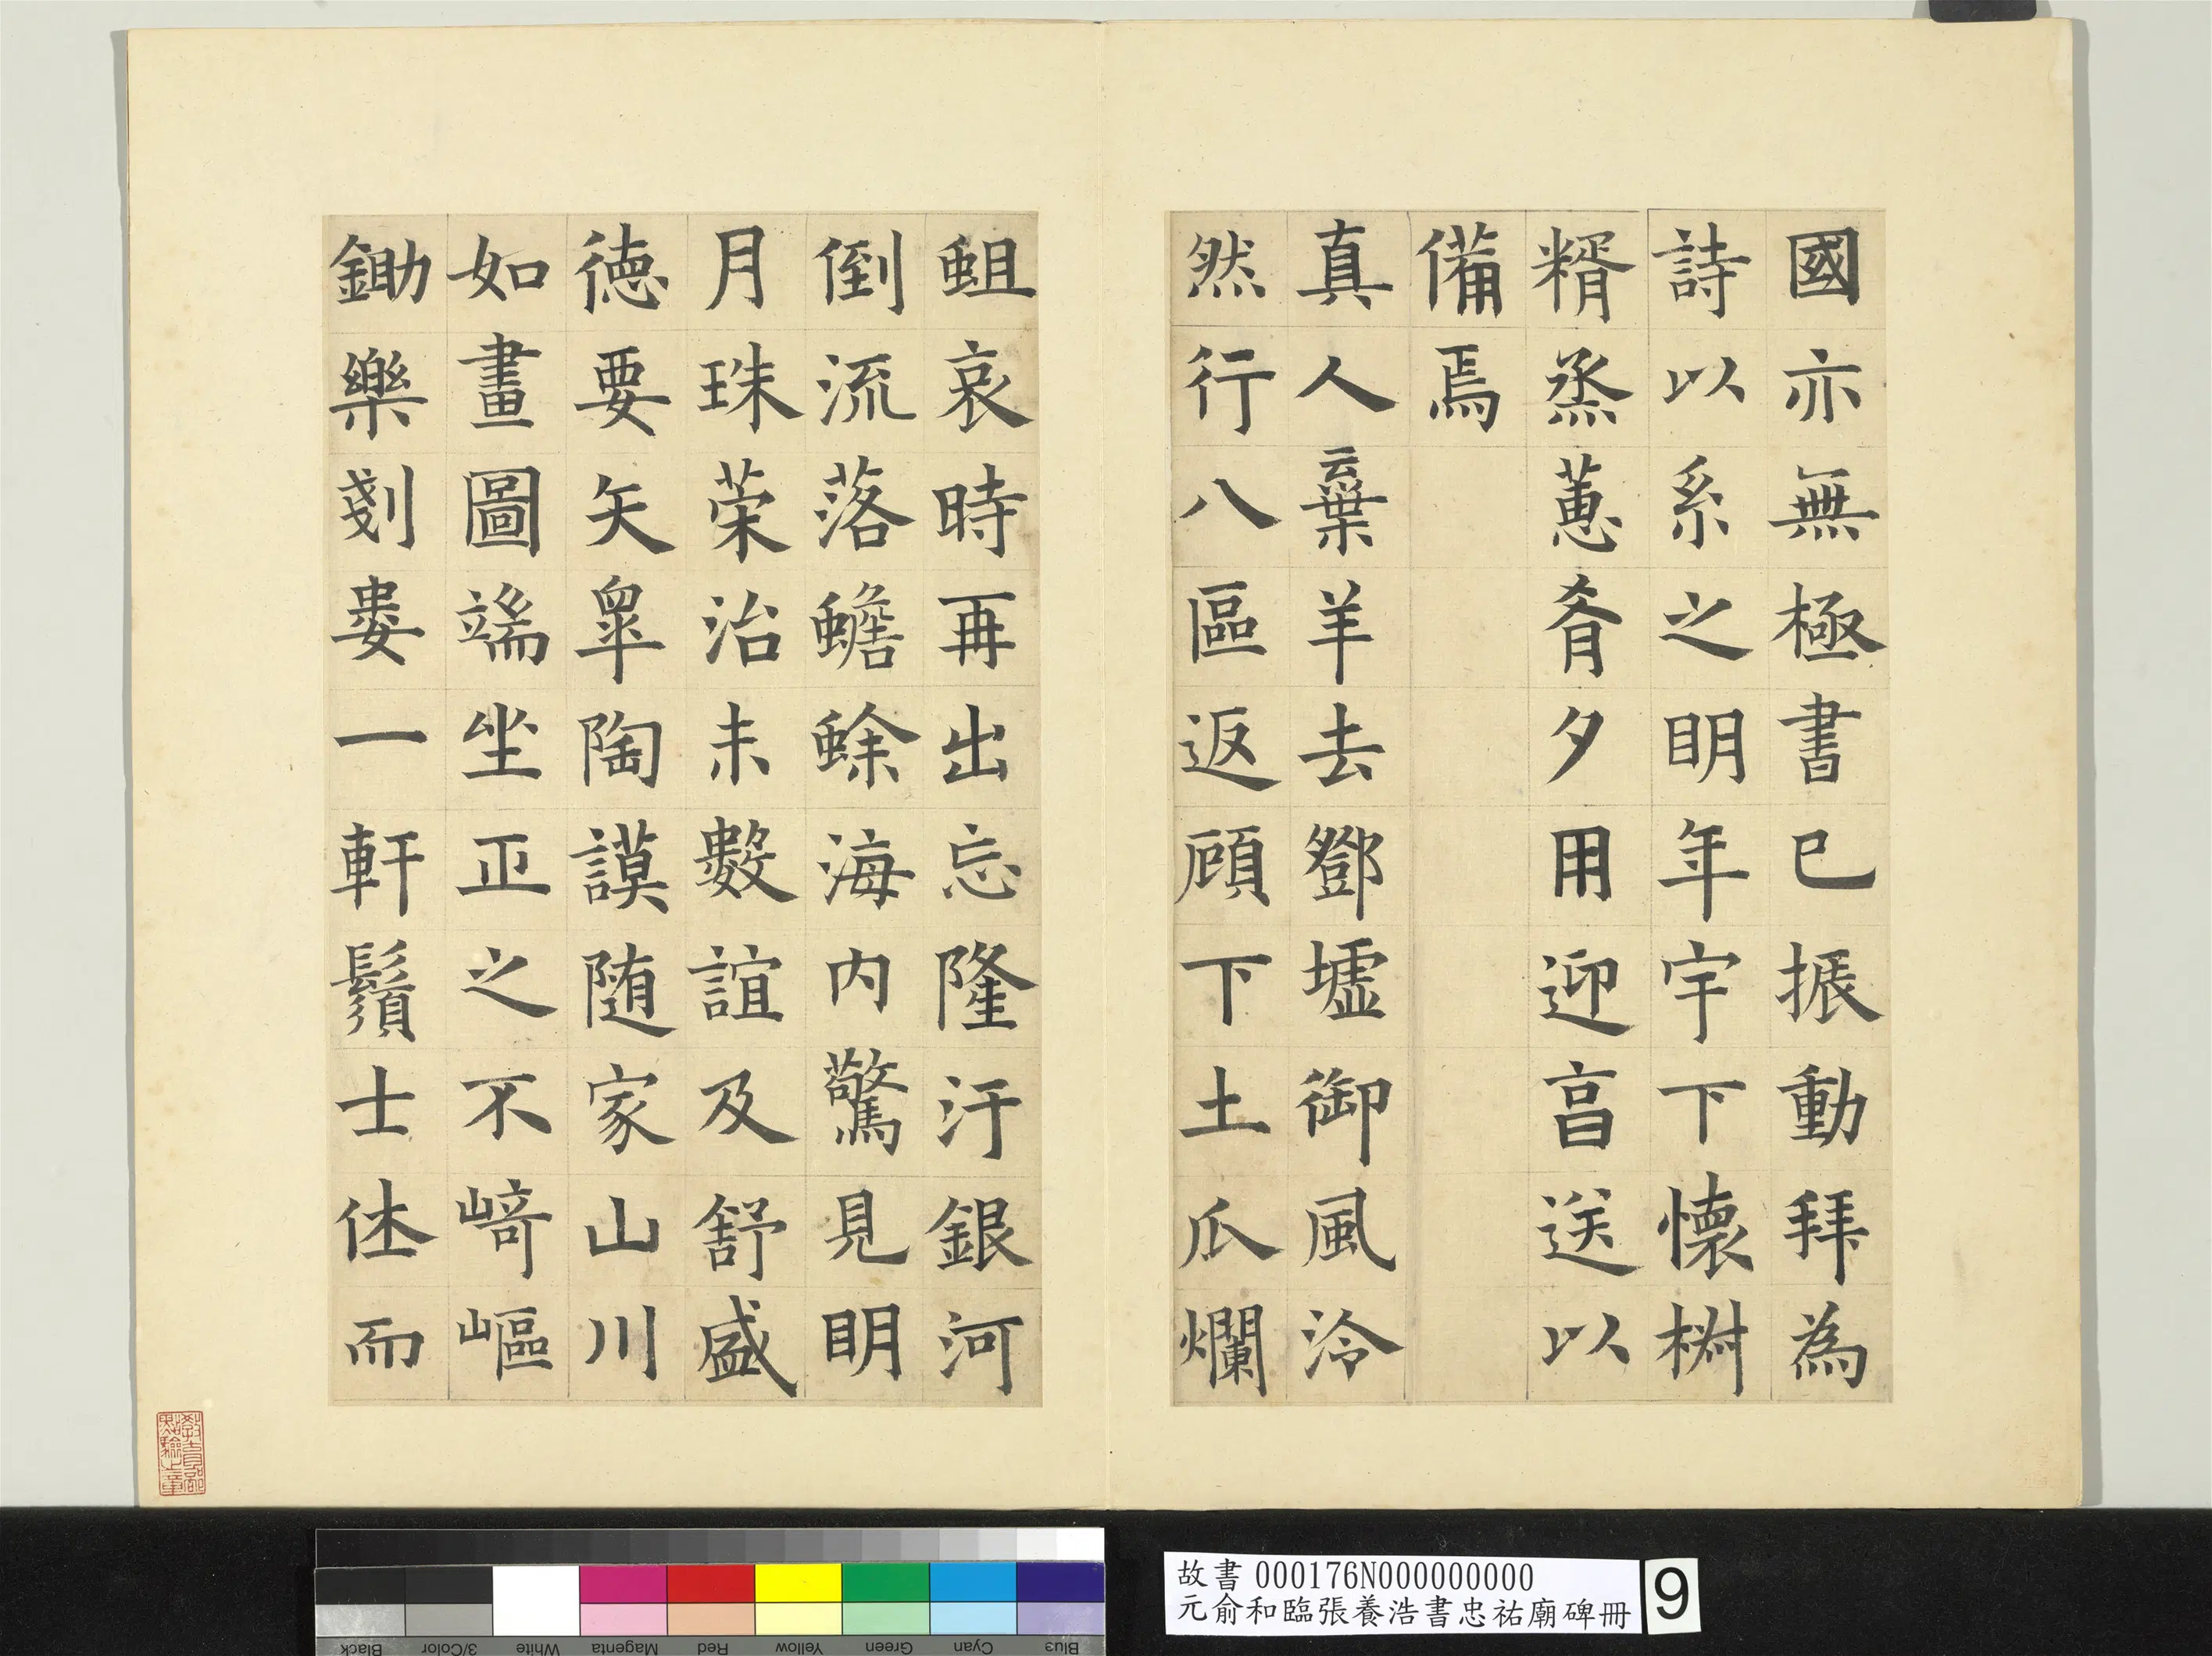 國亦無極書已振動拜為
詩以系之明年宇下懷椒
糈烝蕙肴夕用迎亯送以
備焉
真人棄羊去鄧墟御風泠
然行八區返顧下土瓜爛
蛆哀時再出忘隆汙銀河
倒流落蟾蜍海內驚見明
月珠荣治未數誼及舒盛
德要矢皐陶謨随家山川
如畫圖端坐正之不﨑嶇
鋤樂剗婁一軒鬚士㑅而
故書000176N000000000
元俞和臨張養浩書忠祐廟碑冊
9
教育部點驗之章
Black
3/Color
White
Magenta
Red
Yellow
Green
Cyan
Blue